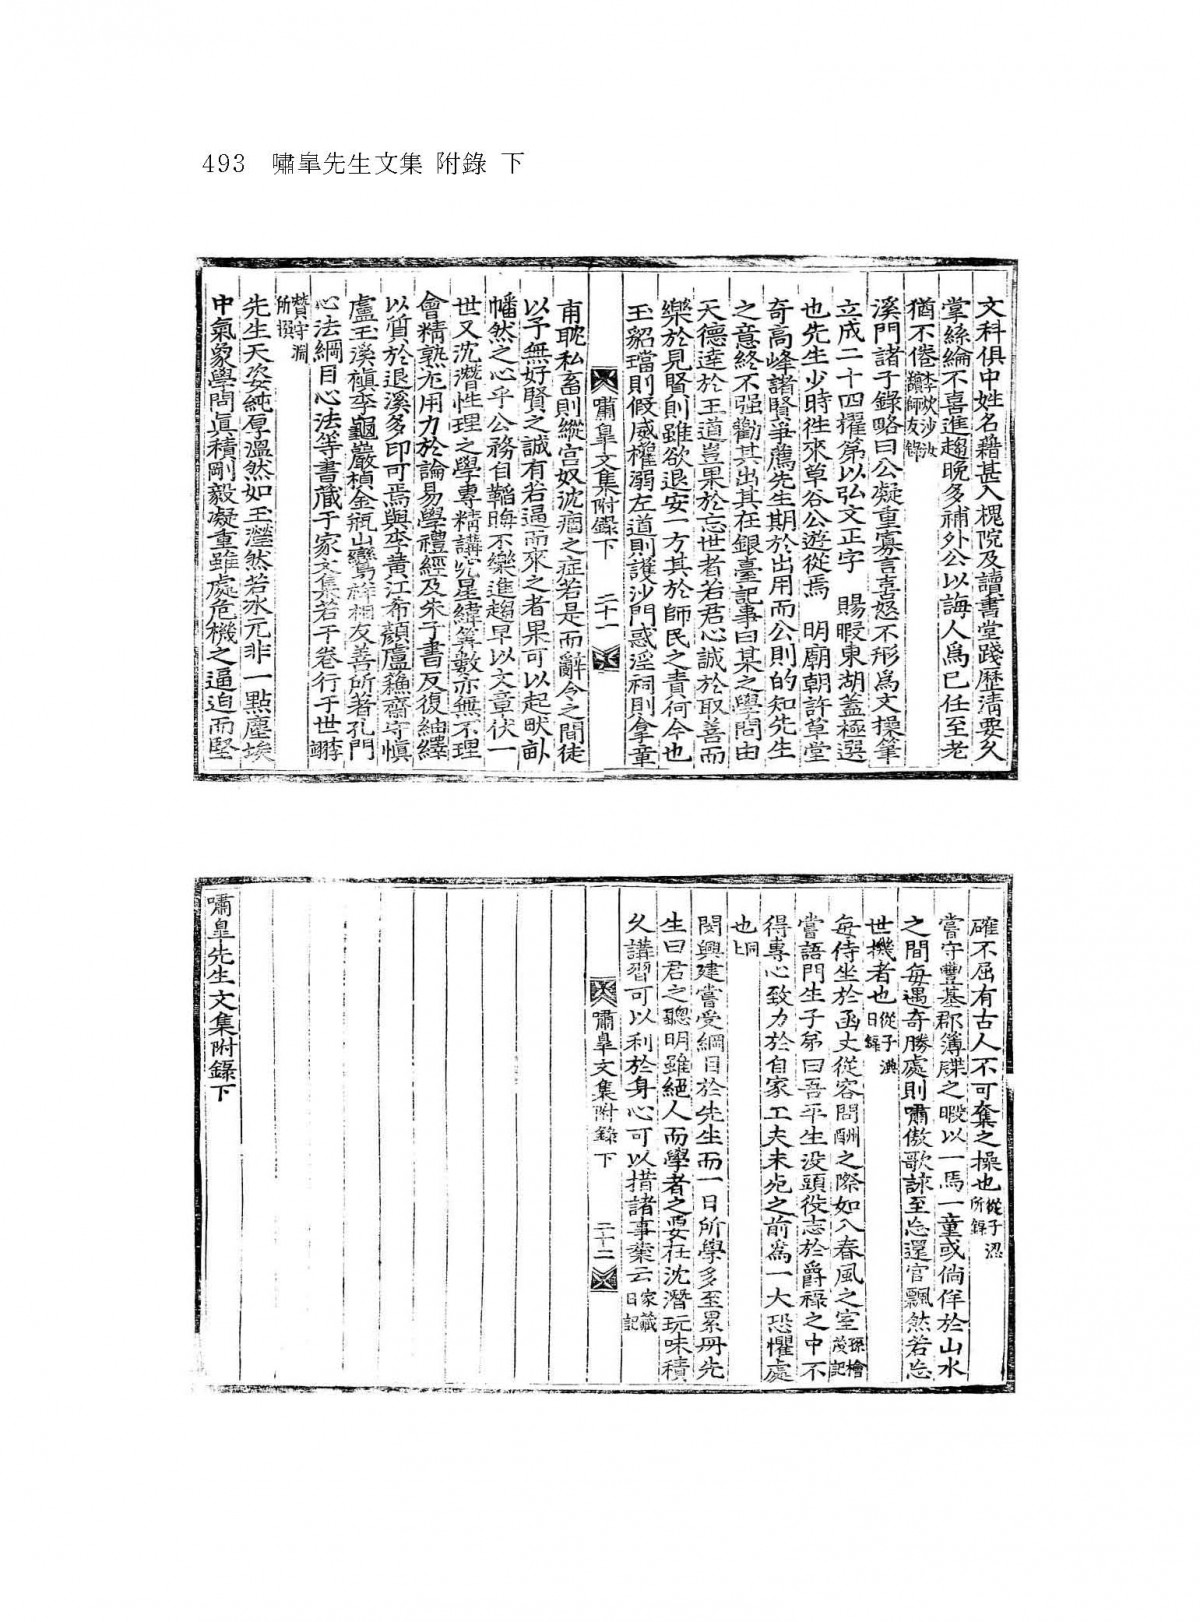 493 嘯皐先生文集 附錄 下
文科俱中姓名藉甚入槐院及讀書堂踐歷淸要久
掌絲綸不喜進趨晚多補外公以誨人爲己任至老
猶不倦李炊沙汝
馪師友錄
溪門諸子錄略曰公凝重寡言喜怒不形爲文操筆
立成二十四擢第以弘文正字 賜暇東湖蓋極選
也先生少時徃來草谷公遊從焉 明廟朝許草堂
奇高峰諸賢爭薦先生期於出用而公則的知先生
之意終不强勸其出其在銀臺記事曰某之學問由
天德達於王道豈果於忘世者若君心誠於取善而
樂於見賢則雖欲退安一方其於師民之責何今也
玉貂璫則假威權溺左道則護沙門惑淫祠則拿童
嘯皐文集附錄下 二十一
甫耽私畜則縱宮奴沈痼之症若是而辭令之間徒
以予無好賢之誠有若逼而來之者果可以起畎畝
幡然之心乎公務自韜晦不樂進趨早以文章伏一
世又沈潛性理之學專精講究星緯筭數亦無不理
會精熟尤用力於論易學禮經及朱子書反復紬繹
以質於退溪多印可焉與李黃江希顔盧穌齋守愼
盧玉溪禛李龜巖楨金甁山鸞祥相友善所著孔門
心法綱目心法等書藏于家文集若干卷行于世鄕李
贊守淵
所撰
先生天姿純厚溫然如玉瀅然若氷元非一點塵埃
中氣象學問眞積剛毅凝重雖處危機之逼迫而堅
確不屈有古人不可奪之操也從子㴒
所錄
嘗守豐基郡簿牒之暇以一馬一童或倘佯於山水
之間每遇奇勝處則嘯傲歌詠至忘還官飄然若忘
世機者也從子㴠
日錄
每侍坐於函丈從容問酬之際如入春風之室孫檜
茂記
嘗語門生子弟曰吾平生没頭役志於爵祿之中不
得專心致力於自家工夫未死之前爲一大恐懼處
也上同
閔興建嘗受綱目於先生而一日所學多至累冊先
生曰君之聰明雖絕人而學者之要在沈潛玩味積
久講習可以利於身心可以措諸事業云家藏
日記
嘯皐文集附錄下 二十二
嘯皐先生文集附錄下